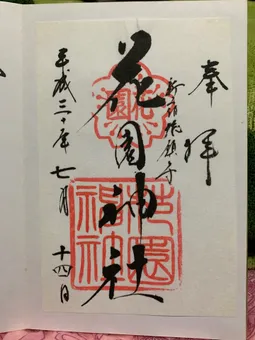 奉拝
新宿総鎮守
花園神社
平成三十年七月十四日
花園神社